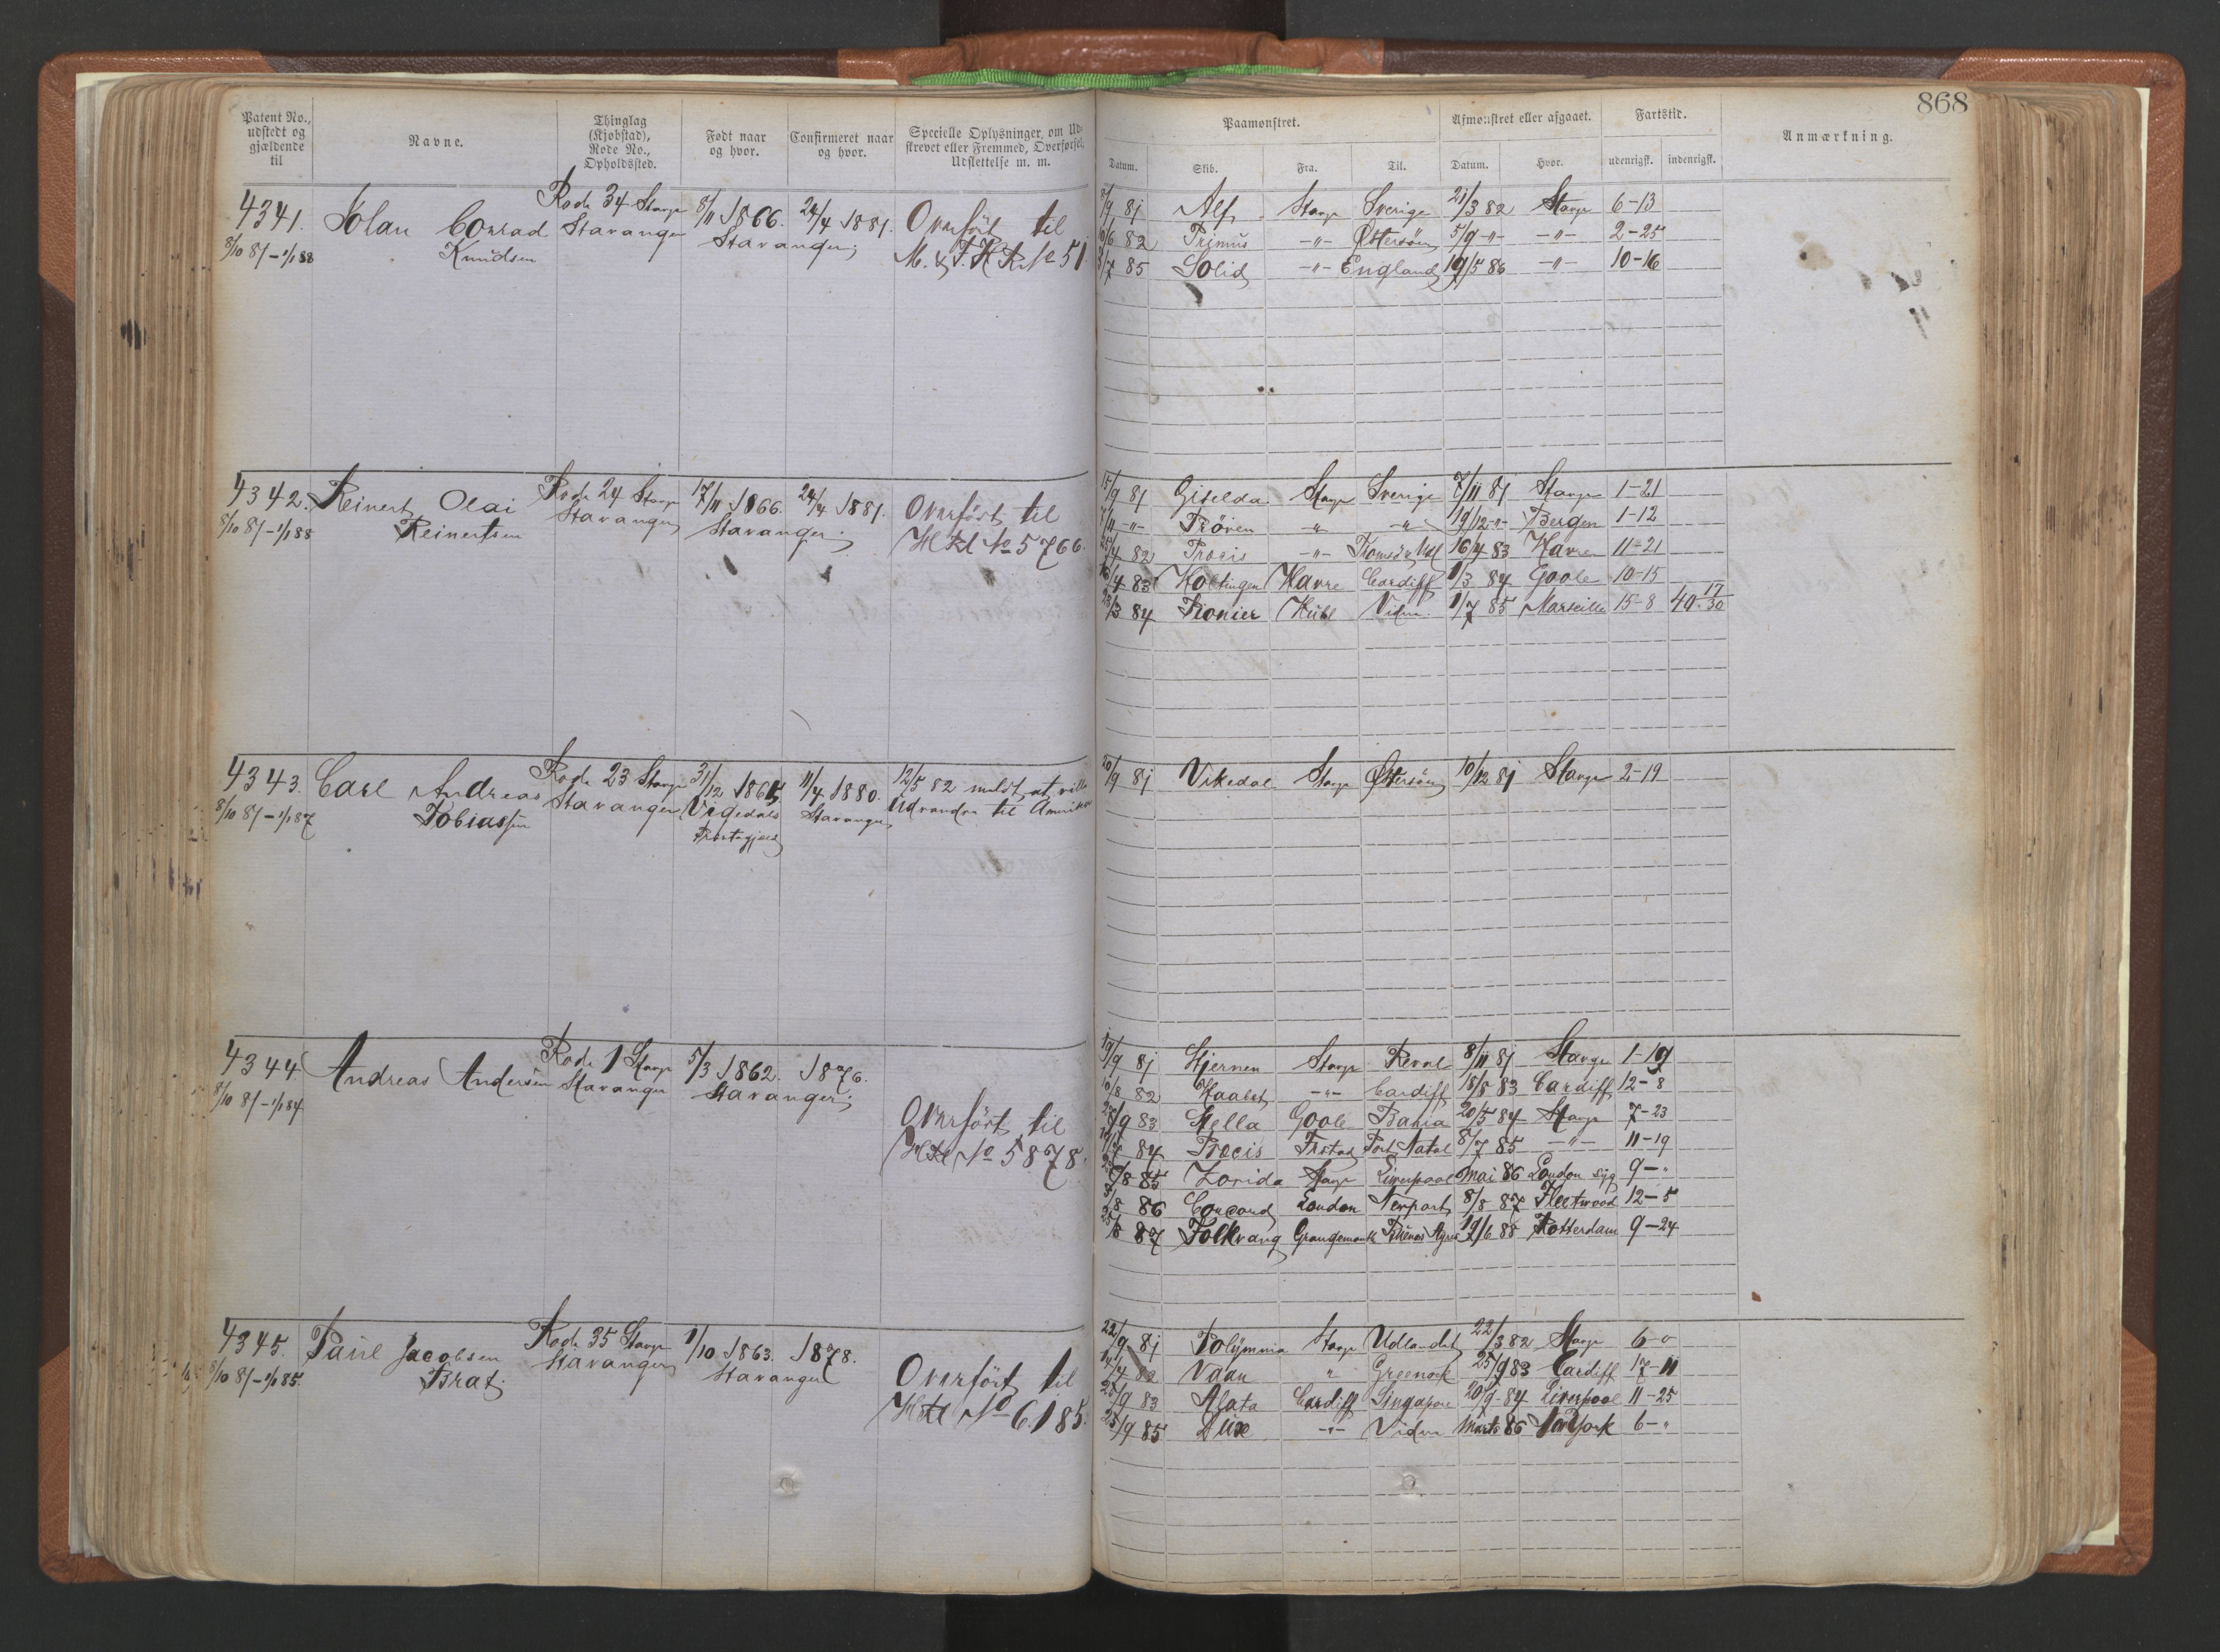 868
Patent No., udstedt og gjældende til
Navne.
Thinglag (Kjøbstad), Rode No., Opholdssted.
Født naar og hvor.
Confirmeret naar og hvor.
Specielle Oplysninger, om Udskrevet eller Fremmed, Overførsel, Udslettelse m. m.
Paamønstret.
Afmønstret eller afgaaet.
Fartstid.
Anmærkning.
Datum. Skib. Fra. Til. Datum. Hvor. udenrigsk. indenrigsk.
4341. Conrad Rode 34 Stavgr 8/11 1866. 24/4 1881. Overført til
8/10 81 - 1/1 88 Knudsen Stavanger Stavanger No 51
81 Alf Stavgr Sverige 21/3 82 Stavgr 6-13
82 Primus -"- Østersøen 5/9 -"- -"- 2-25
85 Solid -"- England 19/5 86 -"- 10-16
4342. Reinert Olai Rode 24 Stavgr 17/11 1866. 24/4 1881. Overført til
8/10 81 - 1/1 88 Reinertsen Stavanger Stavanger No 5766.
15/9 81 Giselda Stavgr Sverige 7/11 81 Stavgr 1-21
-"- Prøven -"- -"- 19/12 -"- Bergen 1-12
82 Procis -"- 16/4 83 Havre 11-21
16/4 83 Havre Cardiff 1/3 84 Goole 10-15
84 Pionier Vidre 1/7 85 Marseille 15-8 40-17/30
4343. Carl Andreas Rode 23 Stavgr 31/12 1865 11/4 1880. 12/5 82 meldt at ville
8/10 81 - 1/1 87 Tobiassen Stavanger Vigedals Stavanger Udvandre til Amerika
Præstegjeld
20/9 81 Vikedal Stavgr Østersøen 10/12 81 Stavgr 2-19
4344. Andreas Andersen Rode 1 Stavgr 5/3 1862. 1876.
8/10 81 - 1/1 84 Stavanger Stavanger
Overført til
No 5878.
19/9 81 Hjernen Stavgr Reval 8/11 81 Stavgr 1-19
82 -"- Cardiff 18/8 83 Cardiff 12-8
83 Stella Goole Bahia 20/5 84 Stavgr 7-23
84 Procis Port Natal 8/7 85 -"- 11-19
85 Zorida Stavgr Liverpool Mai 86 London syg 9-"
86 Concord London Newport 8/8 87 Fleetwood 12-5
87 Folkvang Grangemouth Buenos Ayres 19/6 88 Rotterdam 9-24
4345. Paul Jacobsen Rode 35 Stavgr 1/10 1863. 1878.
8/10 81 - 1/1 85. Brat. Stavanger Stavanger
Overført til
No 6185.
22/9 81 Polymnia Stavgr Udlandet 22/3 82 Stavgr 6-0
82 " Greenock 25/9 83 Cardiff 17-11
83 Agata Cardiff Singapore 20/9 84 Liverpool 11-25
25/9 85 Dux -"- Vidre Marts 86 New York 6-"